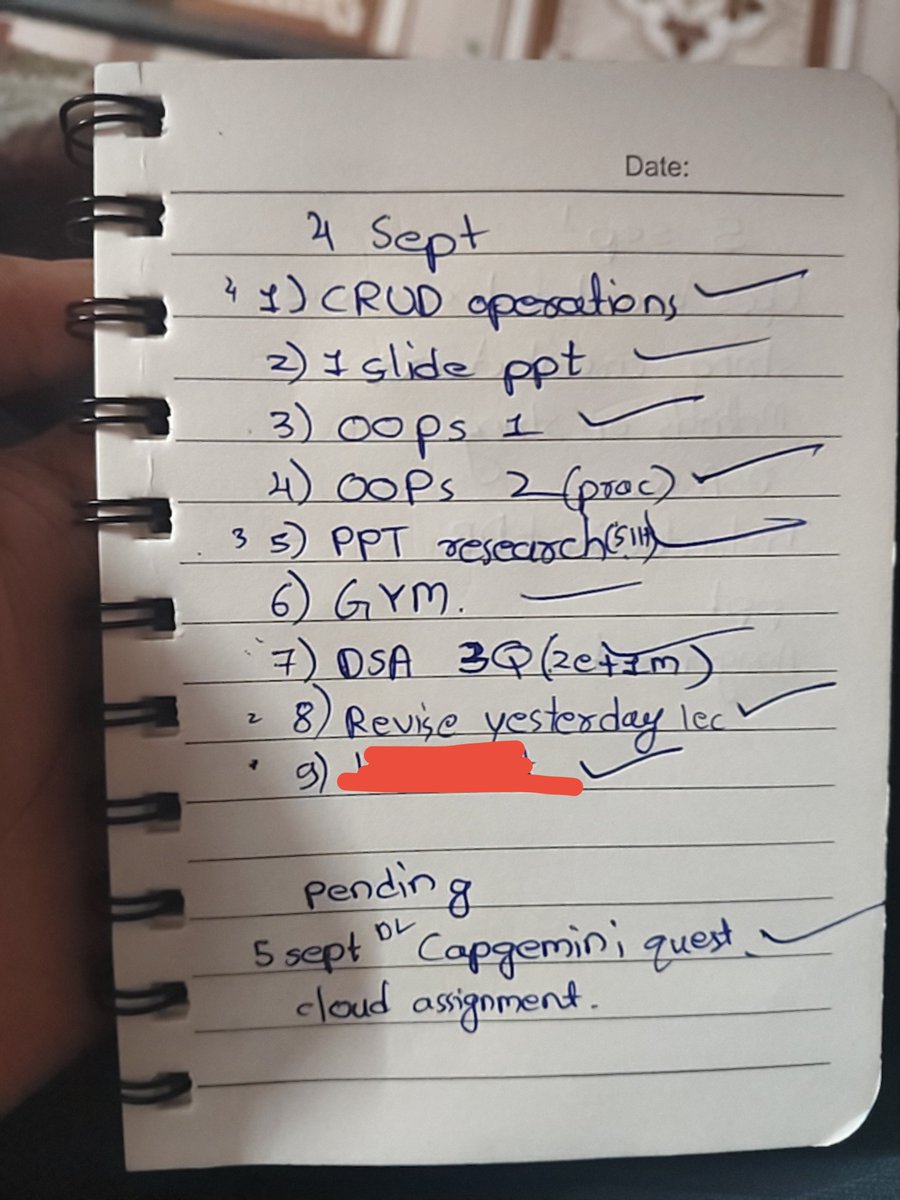 Date:
4 Sept
4 1) CRUD operations
2) 1 slide ppt
3) OOPs 1
4) OOPs 2 (prac)
3 5) PPT research (SIH)
6) GYM.
7) DSA 3Q (2e+1m)
2 8) Revise yesterday lec
9)
pending
5 sept DL Capgemini quest.
cloud assignment.